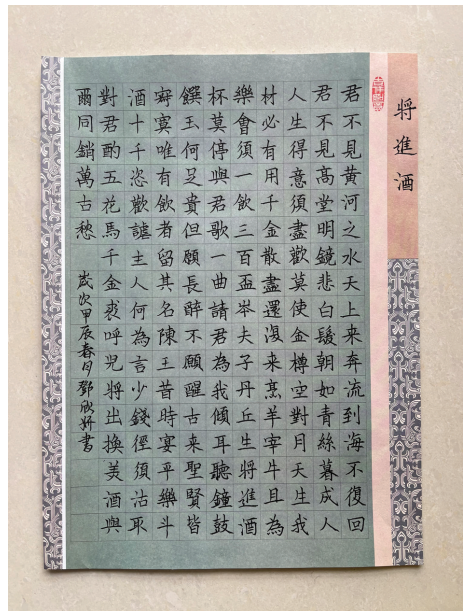 將進酒
君不見黃河之水天上来奔流到海不復回
君不見高堂明鏡悲白髮朝如青絲暮成人
人生得意須盡歡莫使金樽空對月天生我
材必有用千金散盡還復来烹羊宰牛且為
樂會須一飲三百盃岑夫子丹丘生將進酒
杯莫停與君歌一曲請君為我傾耳聽鐘鼓
饌玉何足貴但願長醉不願醒古来聖賢皆
寂寞唯有飲者留其名陳王昔時宴平樂斗
酒十千恣歡謔主人何為言少錢徑須沽取
對君酌五花馬千金裘呼兒將出換美酒與
爾同銷萬古愁
歲次甲辰春月鄧欣妍書